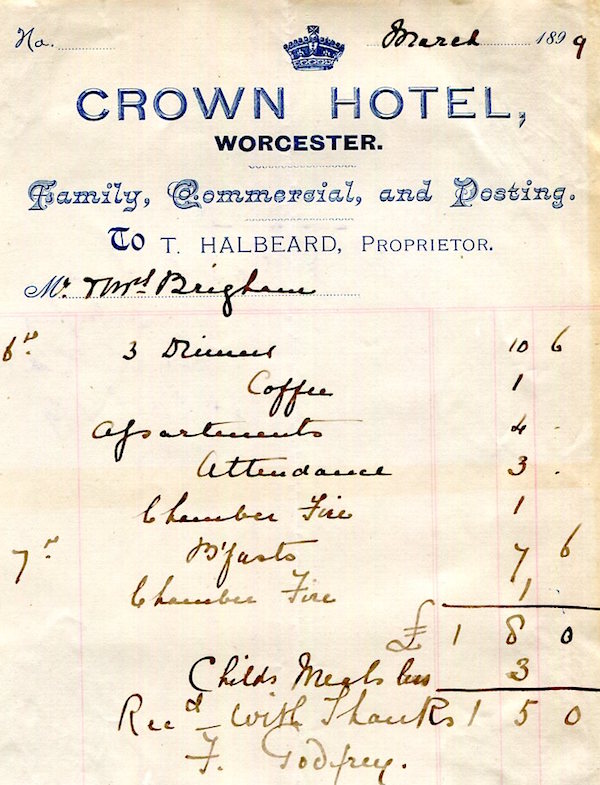 No. March 1899
CROWN HOTEL,
WORCESTER.
Family, Commercial, and Posting.
To T. HALBEARD, PROPRIETOR.
Mr. & Mrs Brigham
6th 3 Dinners 10 6
Coffee 1
Apartements 4 -
Attendance 3 .
Chamber Fire 1
7th B'fasts 7 6
Chamber Fire 1
£ 1 8 0
Childs Meals less 3
Recd With Thanks 1 5 0
F. Godfrey.